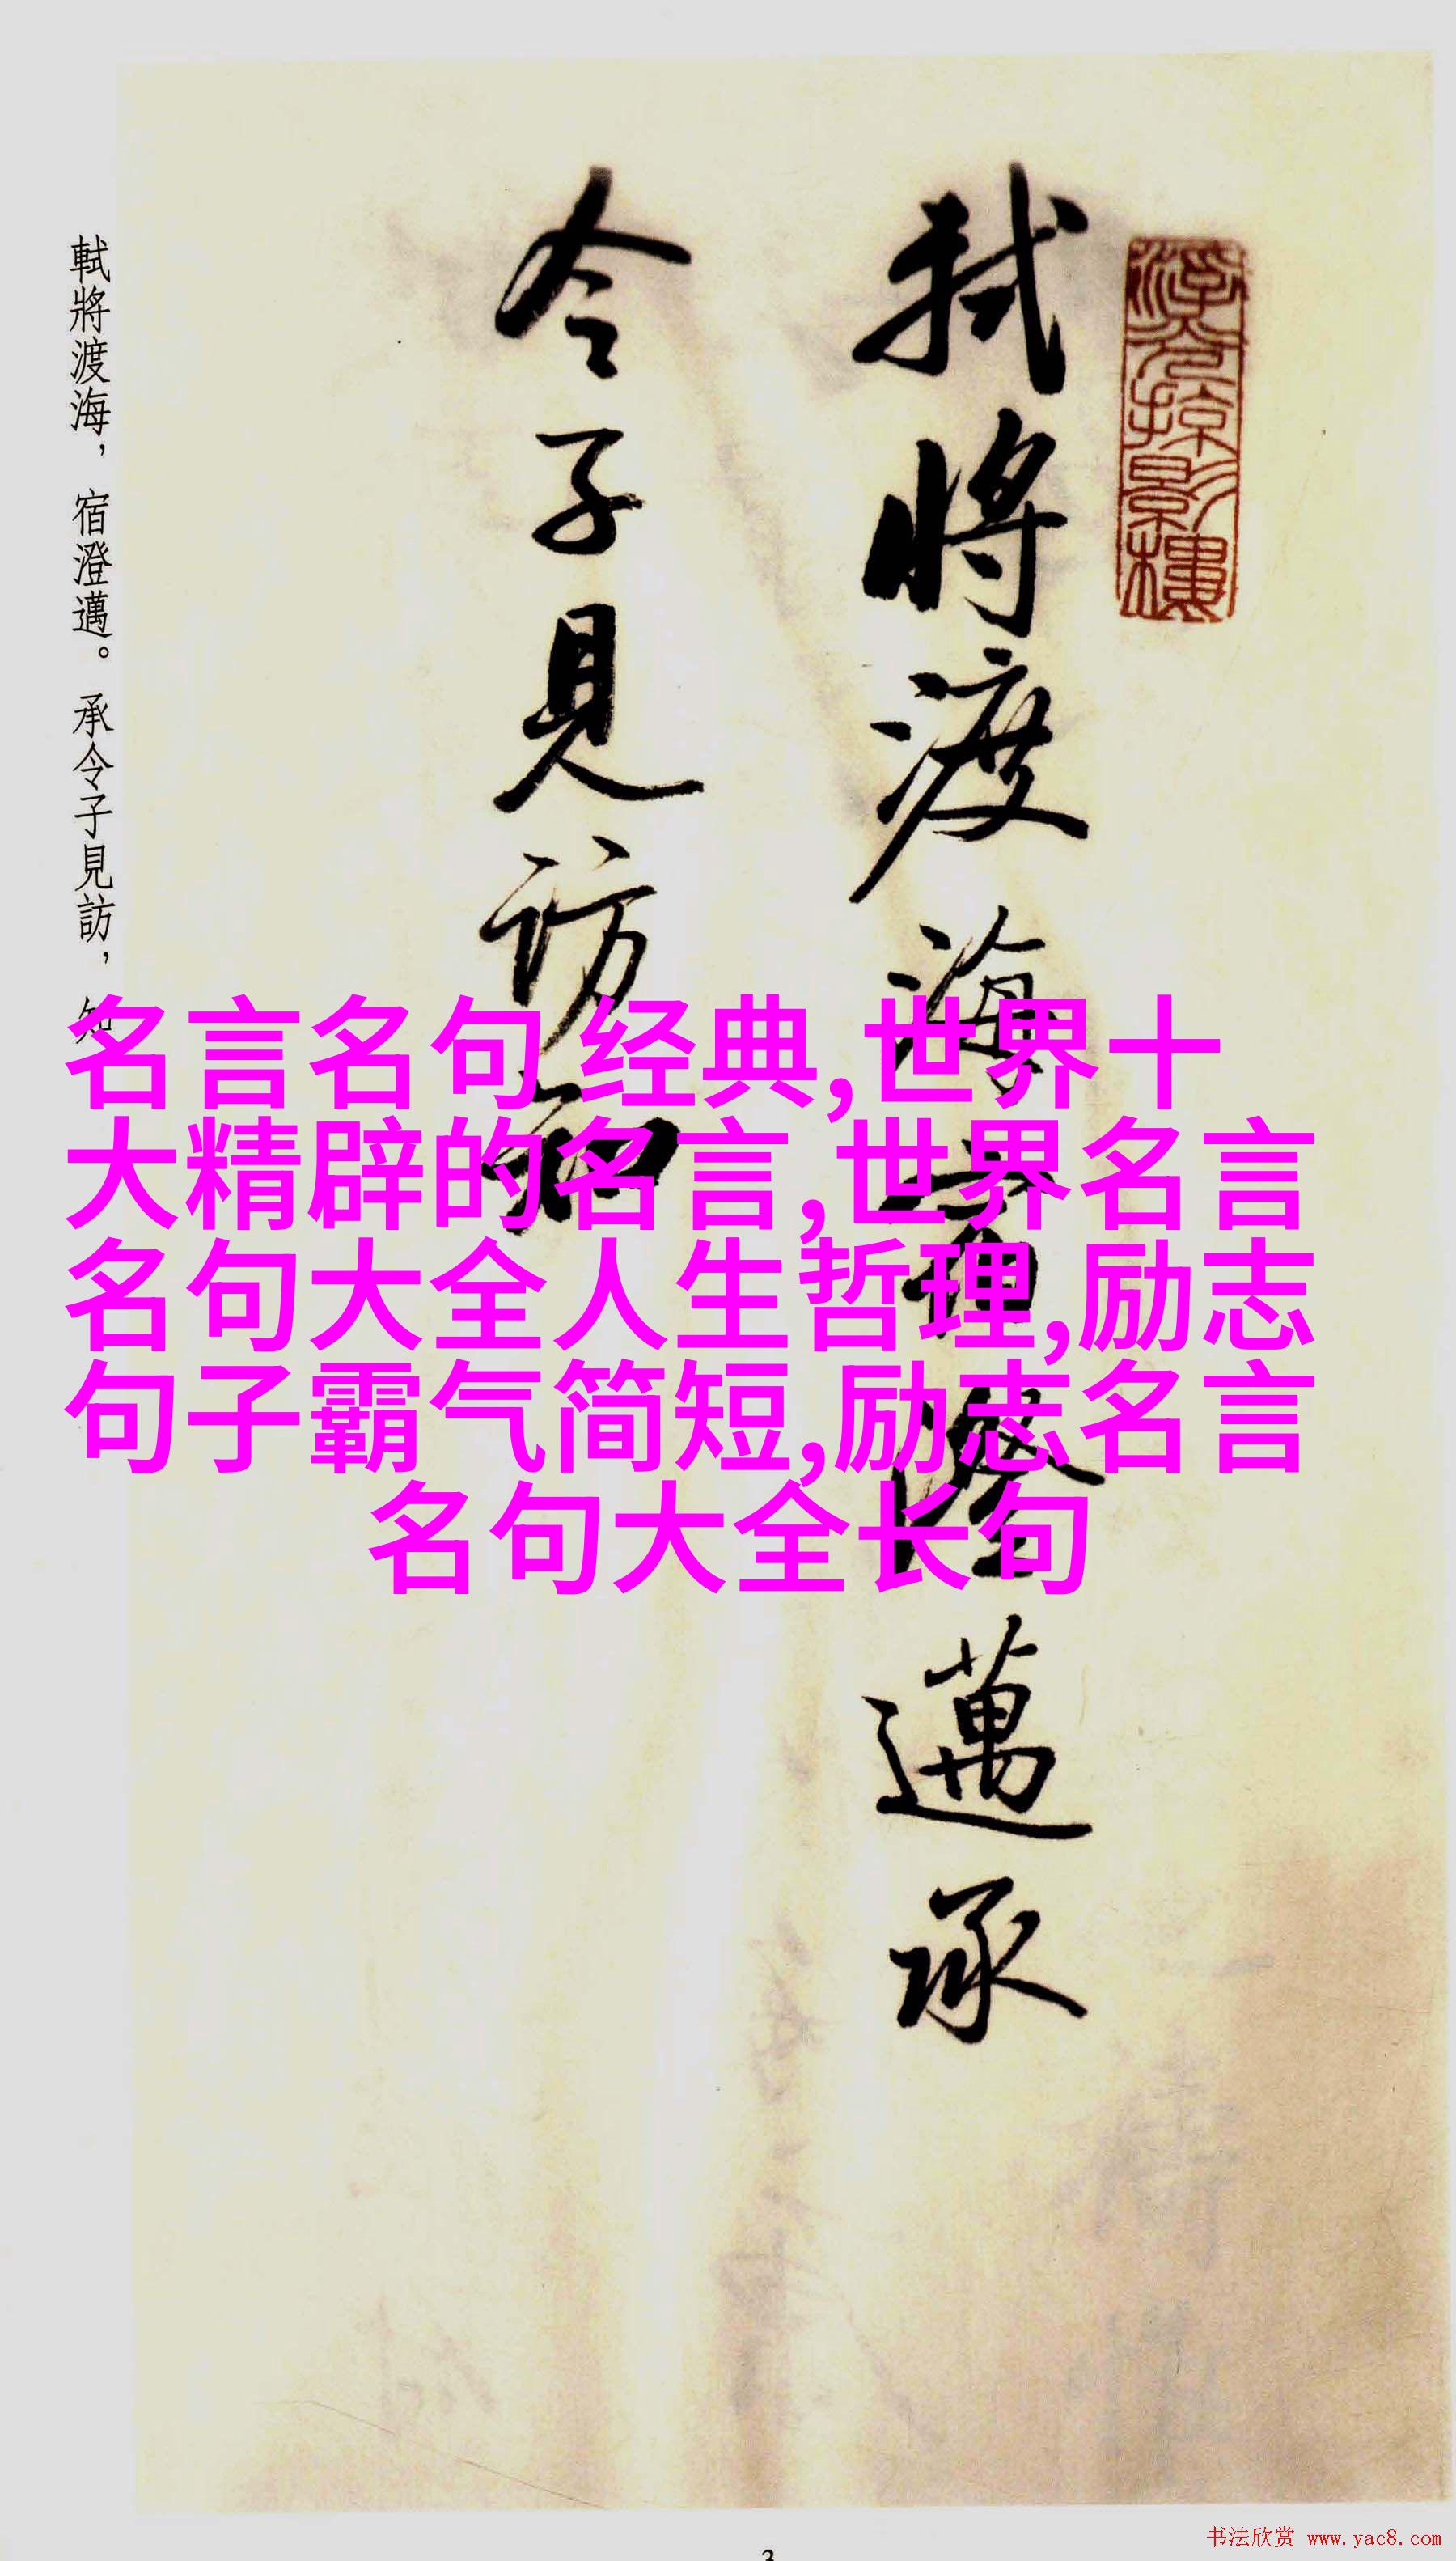 軾將渡海，宿澄邁。承令子見訪，知
軾將渡海宿澄邁承
令子見訪知
名言名句 经典,世界十
大精辟的名言,世界名言
名句大全人生哲理,励志
句子霸气简短,励志名言
名句大全长句
书法欣赏 www.yac8.com
3